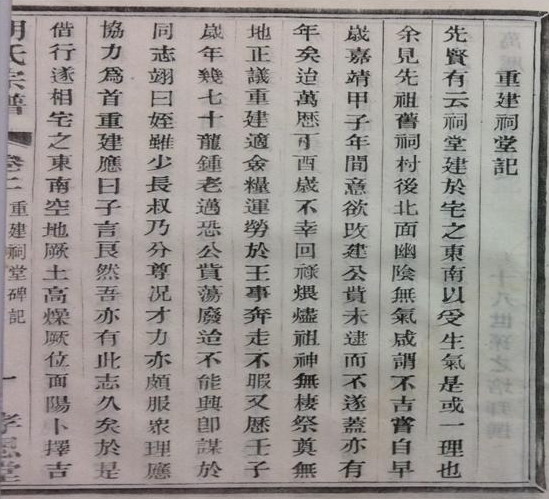 重建祠堂記
先賢有云祠堂建於宅之東南以受生氣是或一理也
余見先祖舊祠村後北面幽陰無氣咸謂不吉嘗自早
歲嘉靖甲子年間意欲改建公貲未逮而不遂蓋亦有
年矣迨萬歷酉歲不幸回祿煨燼祖神無棲祭奠無
地正議重建適僉糧運勞於王事奔走不暇又歷壬子
歲年幾七十龍鍾老邁恐公貲蕩廢迨不能興卽謀於
同志翊曰姪雖少長叔乃分尊况才力亦頗服衆理應
協力爲首重建應曰子言艮然吾亦有此志久矣於是
偕行遂相宅之東南空地厥土高燥厥位面陽卜擇吉
胡氏宗譜 卷二 重建祠堂碑記 一 孝思堂